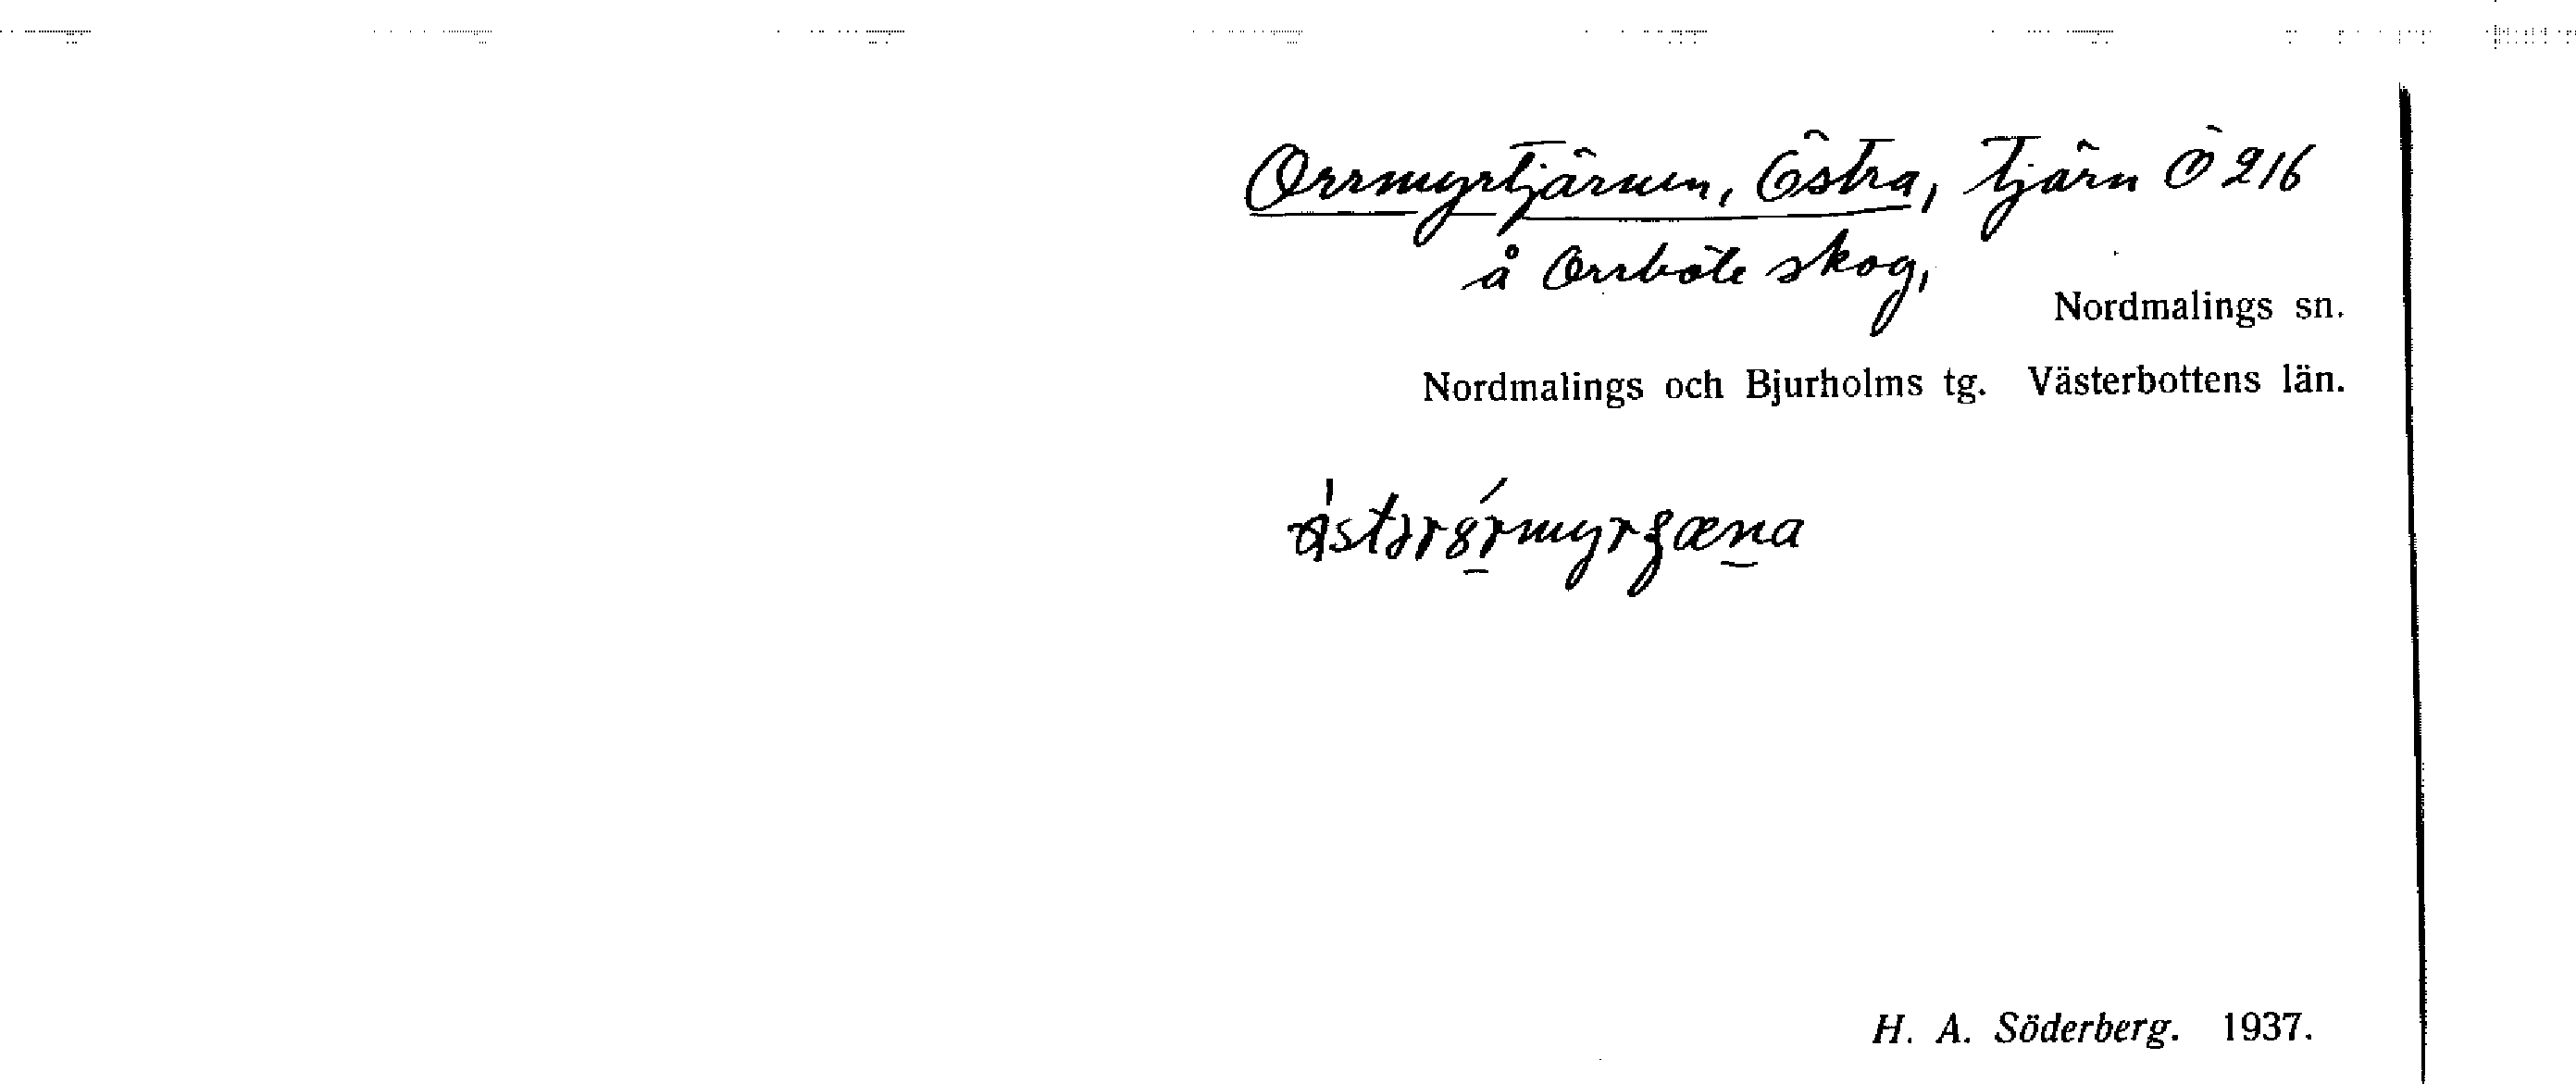 Orrmyrtjärnen, Östra, Tjärn Ö 216
å Orrböle skog,
Nordmalings sn.
Nordmalings och Bjurholms tg. Västerbottens län.
H. A. Söderberg. 1937.